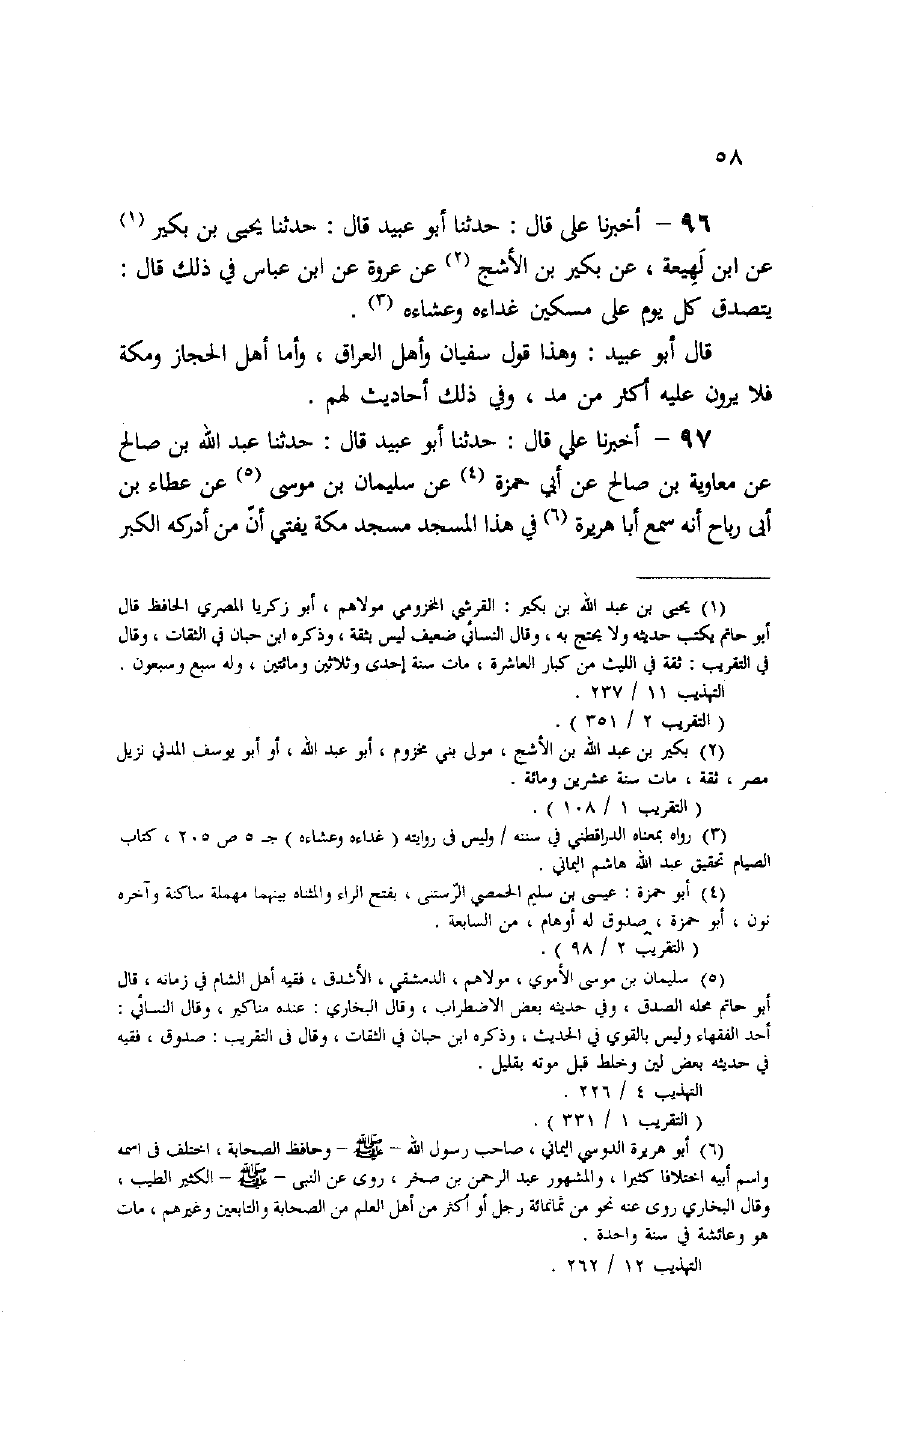 ٥٨
٩٦ – أخبرنا على قال : حدثنا أبو عبيد قال : حدثنا يحيى بن بكير (١)
عن ابن لَهِيعة ، عن بكير بن الأشج (٢) عن عروة عن ابن عباس في ذلك قال :
يتصدق كل يوم على مسكين غداءه وعشاءه (٣) .
قال أبو عبيد : وهذا قول سفيان وأهل العراق ، وأما أهل الحجاز ومكة
فلا يرون عليه أكثر من مد ، وفي ذلك أحاديث لهم .
٩٧ – أخبرنا علي قال : حدثنا أبو عبيد قال : حدثنا عبد الله بن صالح
عن معاوية بن صالح عن أبي حمزة (٤) عن سليمان بن موسى (٥) عن عطاء بن
أبى رباح أنه سمع أبا هريرة (٦) في هذا المسجد مسجد مكة يفتي أنّ من أدركه الكبر
(١) يحيى بن عبد الله بن بكير : القرشي المخزومي مولاهم ، أبو زكريا المصري الحافظ قال
أبو حاتم يكتب حديثه ولا يحتج به ، وقال النسائي ضعيف ليس بثقة ، وذكره ابن حبان في الثقات ، وقال
في التقريب : ثقة في الليث من كبار العاشرة ، مات سنة إحدى وثلاثين ومائتين ، وله سبع وسبعون .
التهذيب ١١ / ٢٣٧ .
( التقريب ٢ / ٣٥١ ) .
(٢) بكير بن عبد الله بن الأشج ، مولى بني مخزوم ، أبو عبد الله ، أو أبو يوسف المدني نزيل
مصر ، ثقة ، مات سنة عشرين ومائة .
( التقريب ١ / ١٠٨ ) .
(٣) رواه بمعناه الدراقطني في سننه / وليس فى روايته ( غداءه وعشاءه ) جـ ٥ ص ٢٠٥ ، كتاب
الصيام تحقيق عبد الله هاشم اليماني .
(٤) أبو حمزة : عيسى بن سليم الحمصي الرّستنى ، بفتح الراء والمثناه بينهما مهملة ساكنة وآخره
نون ، أبو حمزة ، صدوق له أوهام ، من السابعة .
( التقريب ٢ / ٩٨ ) .
(٥) سليمان بن موسى الأموي ، مولاهم ، الدمشقي ، الأشدق ، فقيه أهل الشام في زمانه ، قال
أبو حاتم محله الصدق ، وفي حديثه بعض الاضطراب ، وقال البخاري : عنده مناكير ، وقال النسائي :
أحد الفقهاء وليس بالقوي في الحديث ، وذكره ابن حبان في الثقات ، وقال فى التقريب : صدوق ، فقيه
في حديثه بعض لين وخلط قبل موته بقليل .
التهذيب ٤ / ٢٢٦ .
( التقريب ١ / ٣٣١ ) .
(٦) أبو هريرة الدوسي اليماني ، صاحب رسول الله – ﷺ – وحافظ الصحابة ، اختلف فى اسمه
واسم أبيه اختلافا كثيرا ، والمشهور عبد الرحمن بن صخر ، روى عن النبى – ﷺ – الكثير الطيب ،
وقال البخاري روى عنه نحو من ثمانمائة رجل أو أكثر من أهل العلم من الصحابة والتابعين وغيرهم ، مات
هو وعائشة في سنة واحدة .
التهذيب ١٢ / ٢٦٢ .